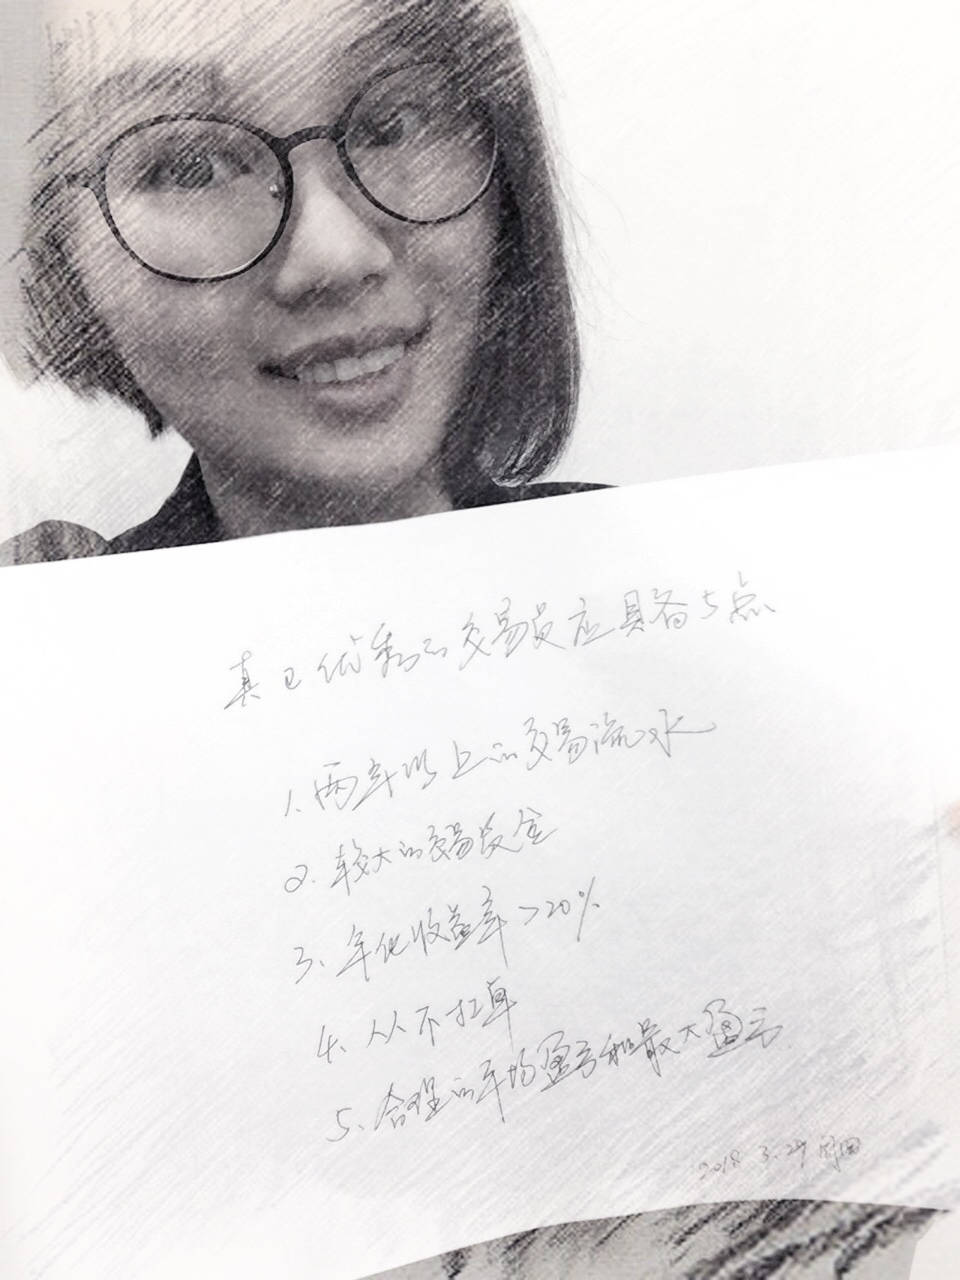 真正优秀的交易员应具备5点
1、两年以上的交易流水
2、较大的交易资金
3、年化收益率>20%
4、从不扛单
5、合理的平均盈亏和最大盈亏
2018 3.24